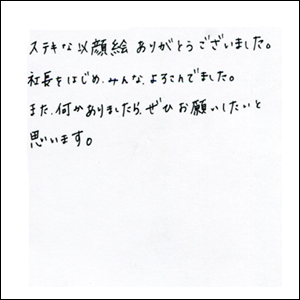 ステキな似顔絵 ありがとうございました。
社長をはじめ、みんな、よろこんでました。
また、何かありましたら、ぜひ お願いしたいと
思います。